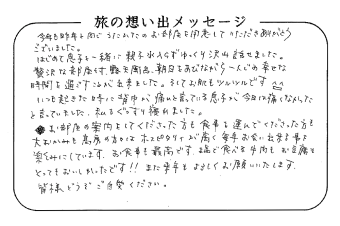 旅の想い出メッセージ
今年も昨年と同じうれたのお部屋を用意して下さりありがとう
ございました。
はじめて息子と一緒に親子水入らずゆっくり沢山話せました。
贅沢な部屋です。露天風呂、朝日をあびながら一人の幸せな
時間を過ごすことが出来ました。そしてお肌もツルツルです
いつも起きた時に背中が痛いと言っている息子が今日は痛くなんだ
と言っていました。私もぐっすり寝れました。
お部屋の案内をしてくださった方も食事を運んでくださった方も
大おかみも島原の方々はホスピタリティが高く毎年お会い出来る事を
楽しみにしています。お食事も最高です。鍋で食べる牛肉もお豆腐も
とってもおいしかったです!!また来年もよろしくお願いいたします。
皆様どうぞご自愛ください。